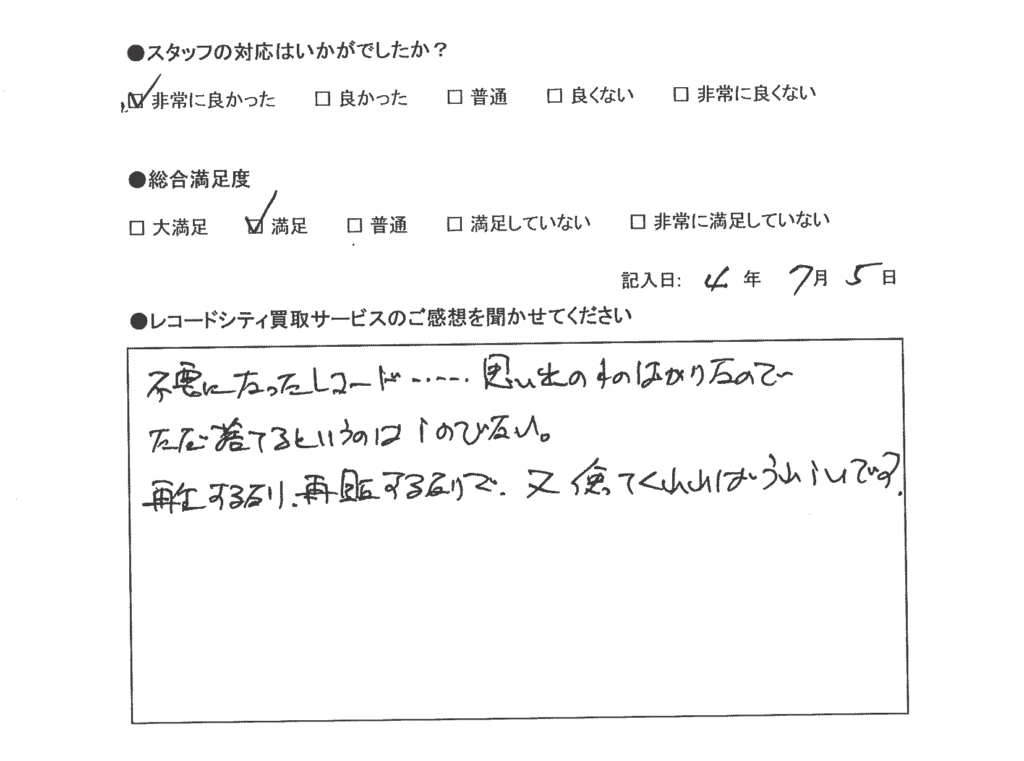 ●スタッフの対応はいかがでしたか？
☑ 非常に良かった □ 良かった □ 普通 □ 良くない □ 非常に良くない
●総合満足度
□ 大満足 ☑ 満足 □ 普通 □ 満足していない □ 非常に満足していない
記入日: 4 年 7月 5 日
●レコードシティ買取サービスのご感想を聞かせてください
不要になったレコード……思い出のものばかりなので
ただ捨てるというのはしのびない。
再生するなり、再販するなりで、又使ってくれればうれしいです。